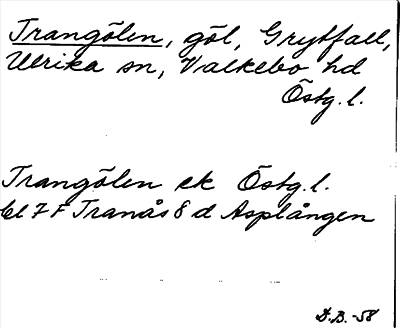 Trangölen, göl, Grytfall,
Ulrika sn, Valkebo hd
Östg. l.
Trangölen ek Östg. l.
bl 7 F Tranås 8 d Asplången
D.B. -58